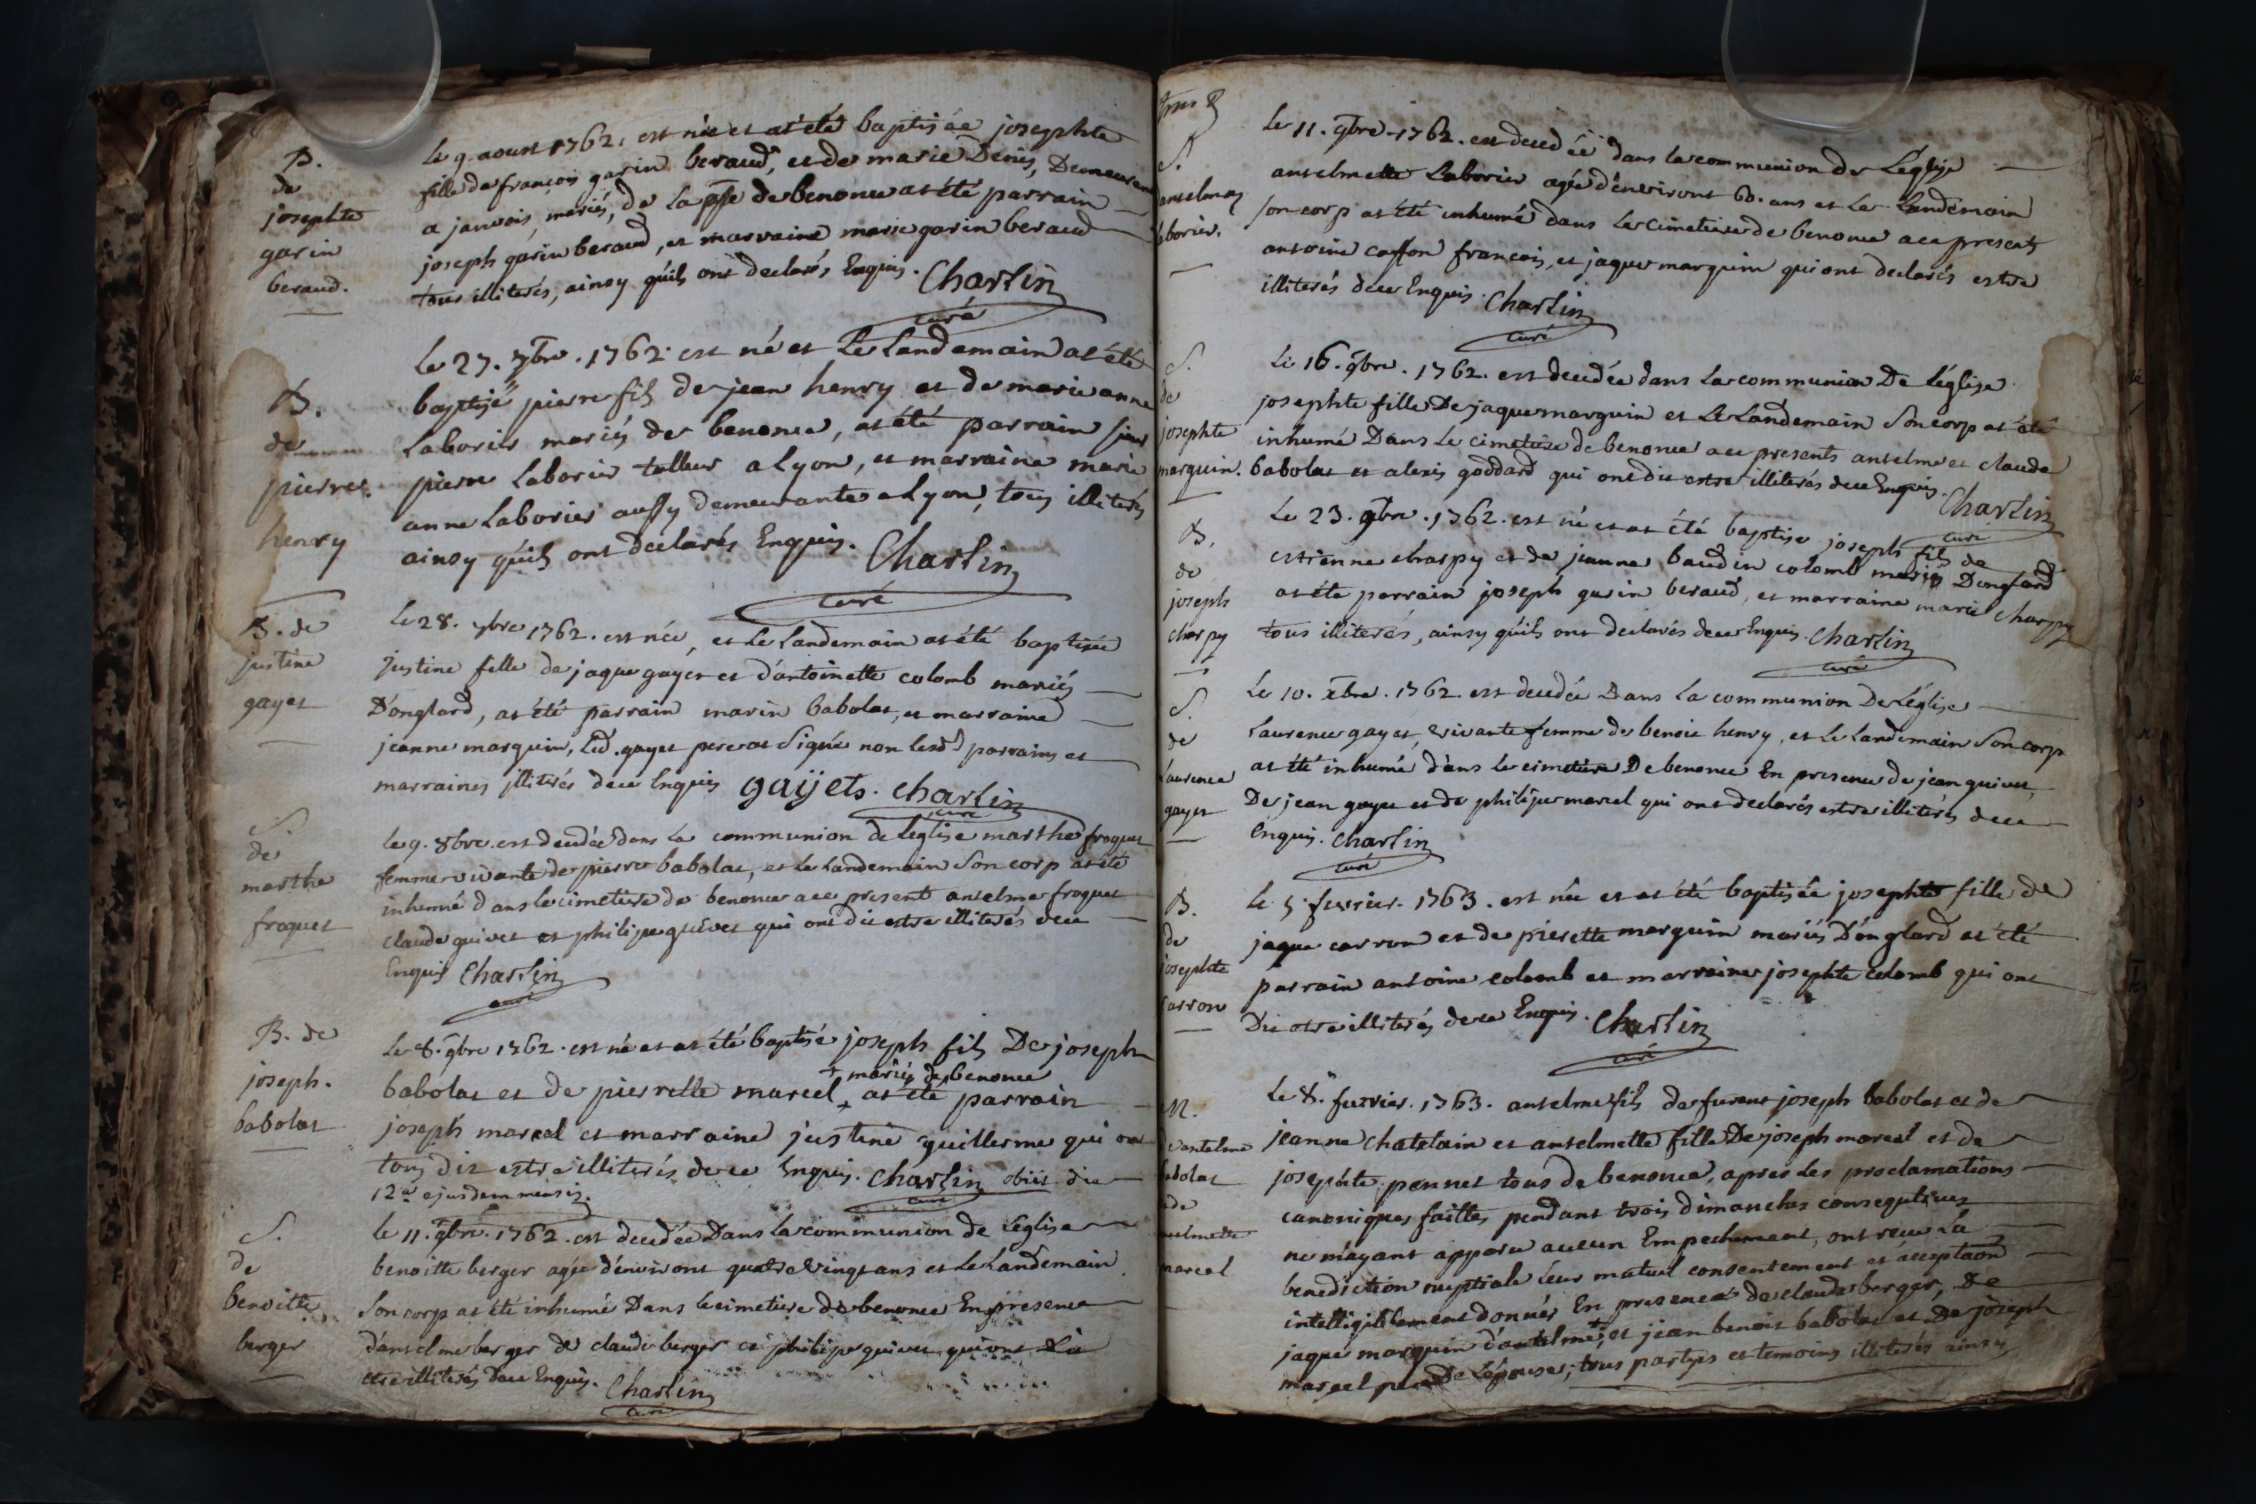 B.
de
josephte
garin
beraud.
Le 9. aoust 1762. est née et at été baptisée josephte
fille de francois garin beraud, et de marie Denis, Demeurant
a janvois, mariés, de la psse de benonce at été parrain
joseph garin beraud, et marraine marie garin beraud
tous illiterés, ainsy quils ont declarés Enquis. Charlin
curé
B.
de
pierre
henry
Le 27. 7bre. 1762. est né et Le Landemain at été
baptisé pierre fils de jean henry et de marie anne
Laborier mariés de benonce, at été parrain sieur
pierre Laborier talleur a Lyon, et marraine marie
anne Laborier aussy demeurante a Lyon, tous illiterés
ainsy quils ont declarés Enquis. Charlin
curé
B. de
justine
gayet
Le 28. 7bre 1762. est née, et Le Landemain at été baptisée
justine fille de jaque gayet et d'antoinette colomb mariés
D'onglard, at été parrain marin babolat, et marraine
jeanne marguin, Led. gayet pere at signé non lesd parrains et
marraines illiterés de ce Enquis gaÿets. Charlin
curé
S.
de
marthe
froquet
Le 9. 8bre. est decedée dans La communion de Leglise marthe froquet
femme vivante de pierre babolat, et Le Landemain Son corp at été
inhumé dans le cimetiere de benonce ace present anselme froquet
claude quivet et philipe quivet qui ont dit estre illiterés de ce
Enquis Charlin
curé
B. de
joseph.
babolat
Le 8. 9bre 1762. est né et at été baptisé joseph fils De joseph
+ mariés de benonce
babolat et de pierrette marcel + at été parrain
joseph marcel et marraine justine guillerme qui ont
tous dit estre illiterés de ce Enquis. Charlin obiit die
curé
12a ejusdem mensis.
S.
de
benoitte
berger
Le 11. 9bre. 1762. est decedée Dans La communion de Leglise
benoitte berger agée d'environt quatre vingt ans et Le Landemain
Son corp at été inhumé Dans le cimetiere de benonce En presence
d'anselme berger de claude berger et philipe quivet qui ont dit
estre illiterés de ce Enquis. Charlin
curé
S.
anselmet
laborier.
Le 11. 9bre. 1762. est decedéé dans la communion de Léglise
anselmette Laborier agée d'environt 60. ans et Le Landemain
son corp at été inhumé dans Le cimetiere de benonce ace presents
antoine caffon francois, et jaque marguin qui ont declarés estre
illiterés de ce Enquis. Charlin
curé
S.
de
josephte
marguin.
Le 16. 9bre. 1762. est decedée dans La communion De Léglise
josephte fille De jaque marguin et Le Landemain Son corp at été
inhumé Dans Le cimetiere de benonce ace presents anselme et claude
babolat et alexis goddard qui ont dit estre illiterés de ce Enquis. Charlin
curé
B.
de
joseph
charpy
Le 23. 9bre. 1762. est né et at été baptisé joseph fils de
estienne charpy et de jeanne baudin colomb mariés Donglard
at été parrain joseph garin beraud, et marraine marie charpy
tous illiterés, ainsy quils ont declarés de ce Enquis. Charlin
curé
S.
de
Laurence
gayet
Le 10. xbre. 1762. est decedée Dans La communion De Léglise
Laurence gayet, vivante femme de benoit henry, et Le Landemain Son corp
at été inhumé dans le cimetiere De benonce En presence de jean quivet,
De jean gayet et de philipe marcel qui ont declarés estre illiterés de ce
Enquis. Charlin
curé
B.
de
josephte
carron
Le 5. fevrier. 1763. est née et at été baptisée josephte fille de
jaque carron et de pierette marguin mariés D'onglard at été
parrain antoine colomb et marraine josephte colomb qui ont
Dit estre illiterés de ce Enquis. Charlin
curé
M.
d'anselme
babolat
et de
anselmette
marcel
Le 8. fevrier. 1763. anselme fils de furent joseph babolat et de
jeanne chatelain et anselmette fille De joseph marcel et de
josephte pennet tous de benonce, apres Les proclamations
canoniques faittes pendant trois dimanches consequtives
ne m'ayant apparu aucun Empechement, ont receu La
benediction nuptiale Leur mutuel consentement et acceptaon
intelligiblement donnés En presence de claude berger, De
jaque marguin d'anselme, et jean benoit babolat et De joseph
marcel pere De Lépouse, tous partyes et temoins illiterés ainsy